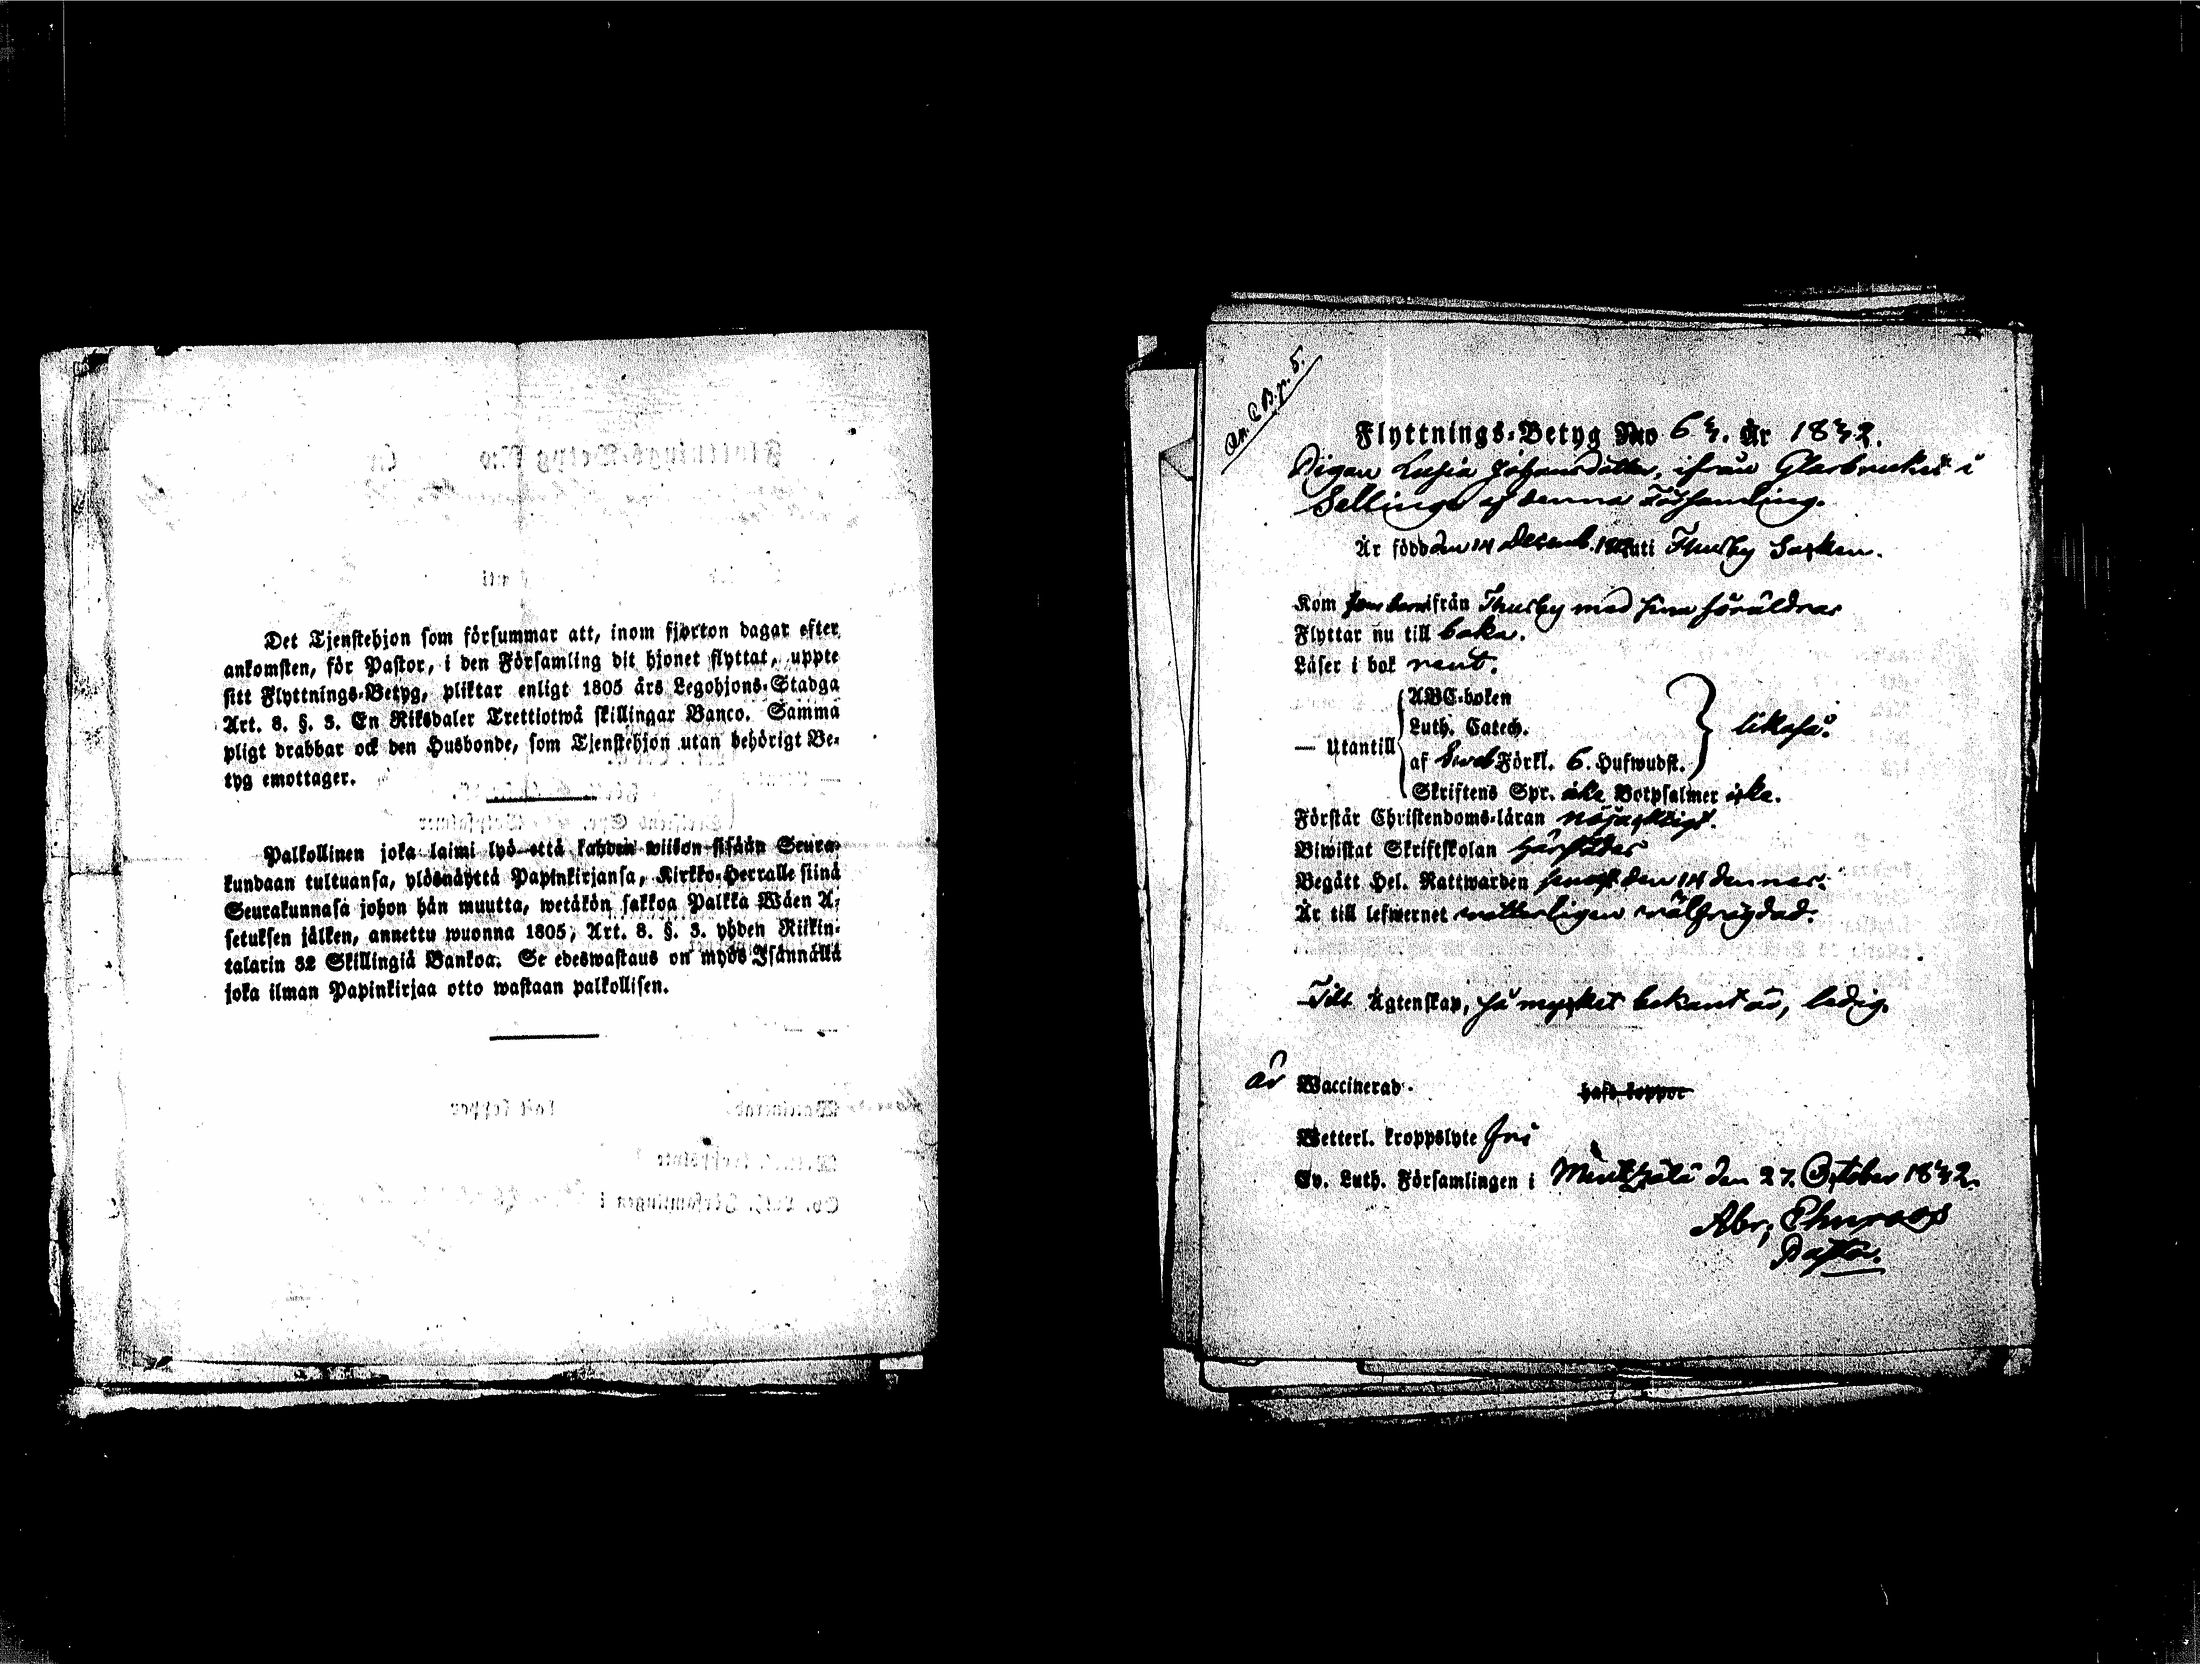 Det Tjenstehjon som försummar att, inom fjorton dagar efter
ankomsten, för Pastor, i den Församling dit hjonet flyttat, uppte
sitt Flyttnings-Betyg, pliktar enligt 1805 års Legohjons-Stadga
Art. 8. §. 3. En Riksdaler Trettiotwå skillingar Banco. Samma
pligt drabbar ock den Husbonde, som Tjenstehjon utan behörigt Be-
tyg emottager.
Palkollinen joka laimi lyö että kahden wiikon sisään Seura-
kundaan tultuansa, ylösnäyttä Papinkirjansa, Kirkko-Herralle siinä
Seurakunnasa johon hän muutta, wetäkön sakkoa Palkka Wäen A-
setuksen jälken, annettu wuonna 1805, Art. 8. §. 3. yhden Riikin-
talarin 32 Skillingiä Bankoa. Se edeswastaus on myös Isännällä
joka ilman Papinkirjaa otto wastaan palkollisen.
An. C B. p. 5.
Flyttnings-Betyg No 64. År 1842.
Pigan Johansdotter, ifrån Glasbruket i
Sellinge af denna Församling.
Är född den 14 Decemb. uti Thusby Socken.
Kom ifrån Thusby med sina föräldrar
Flyttar nu till baka.
Läser i bok rent.
— Utantill
ABC-boken
Luth. Catech.
af Förkl. 6. Hufwudst.
likaså.
Skriftens Spr. icke Botpsalmer icke.
Förstår Christendoms-läran nöjaktligt.
Biwistat Skriftskolan härstädes
Begått Hel. Nattwarden senast den 14 dennes.
Är till lefwernet wälfrägdad.
Till Ägtenskap, så mycket bekant är, ledig.
är Waccinerad.
haft koppor
Wetterl. kroppslyte fri
Ev. Luth. Församlingen i den 27. October 1842.
Abr.
Pastor.